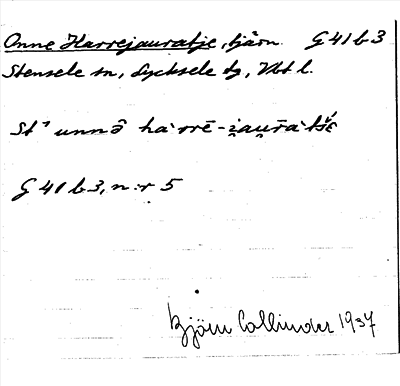 Onne Harrejauratje, tjärn. G 41 b 3
Stensele sn, Lycksele dg, Vbt l.
St unnô
G 41 b 3, nr 5
Björn Collinder 1937